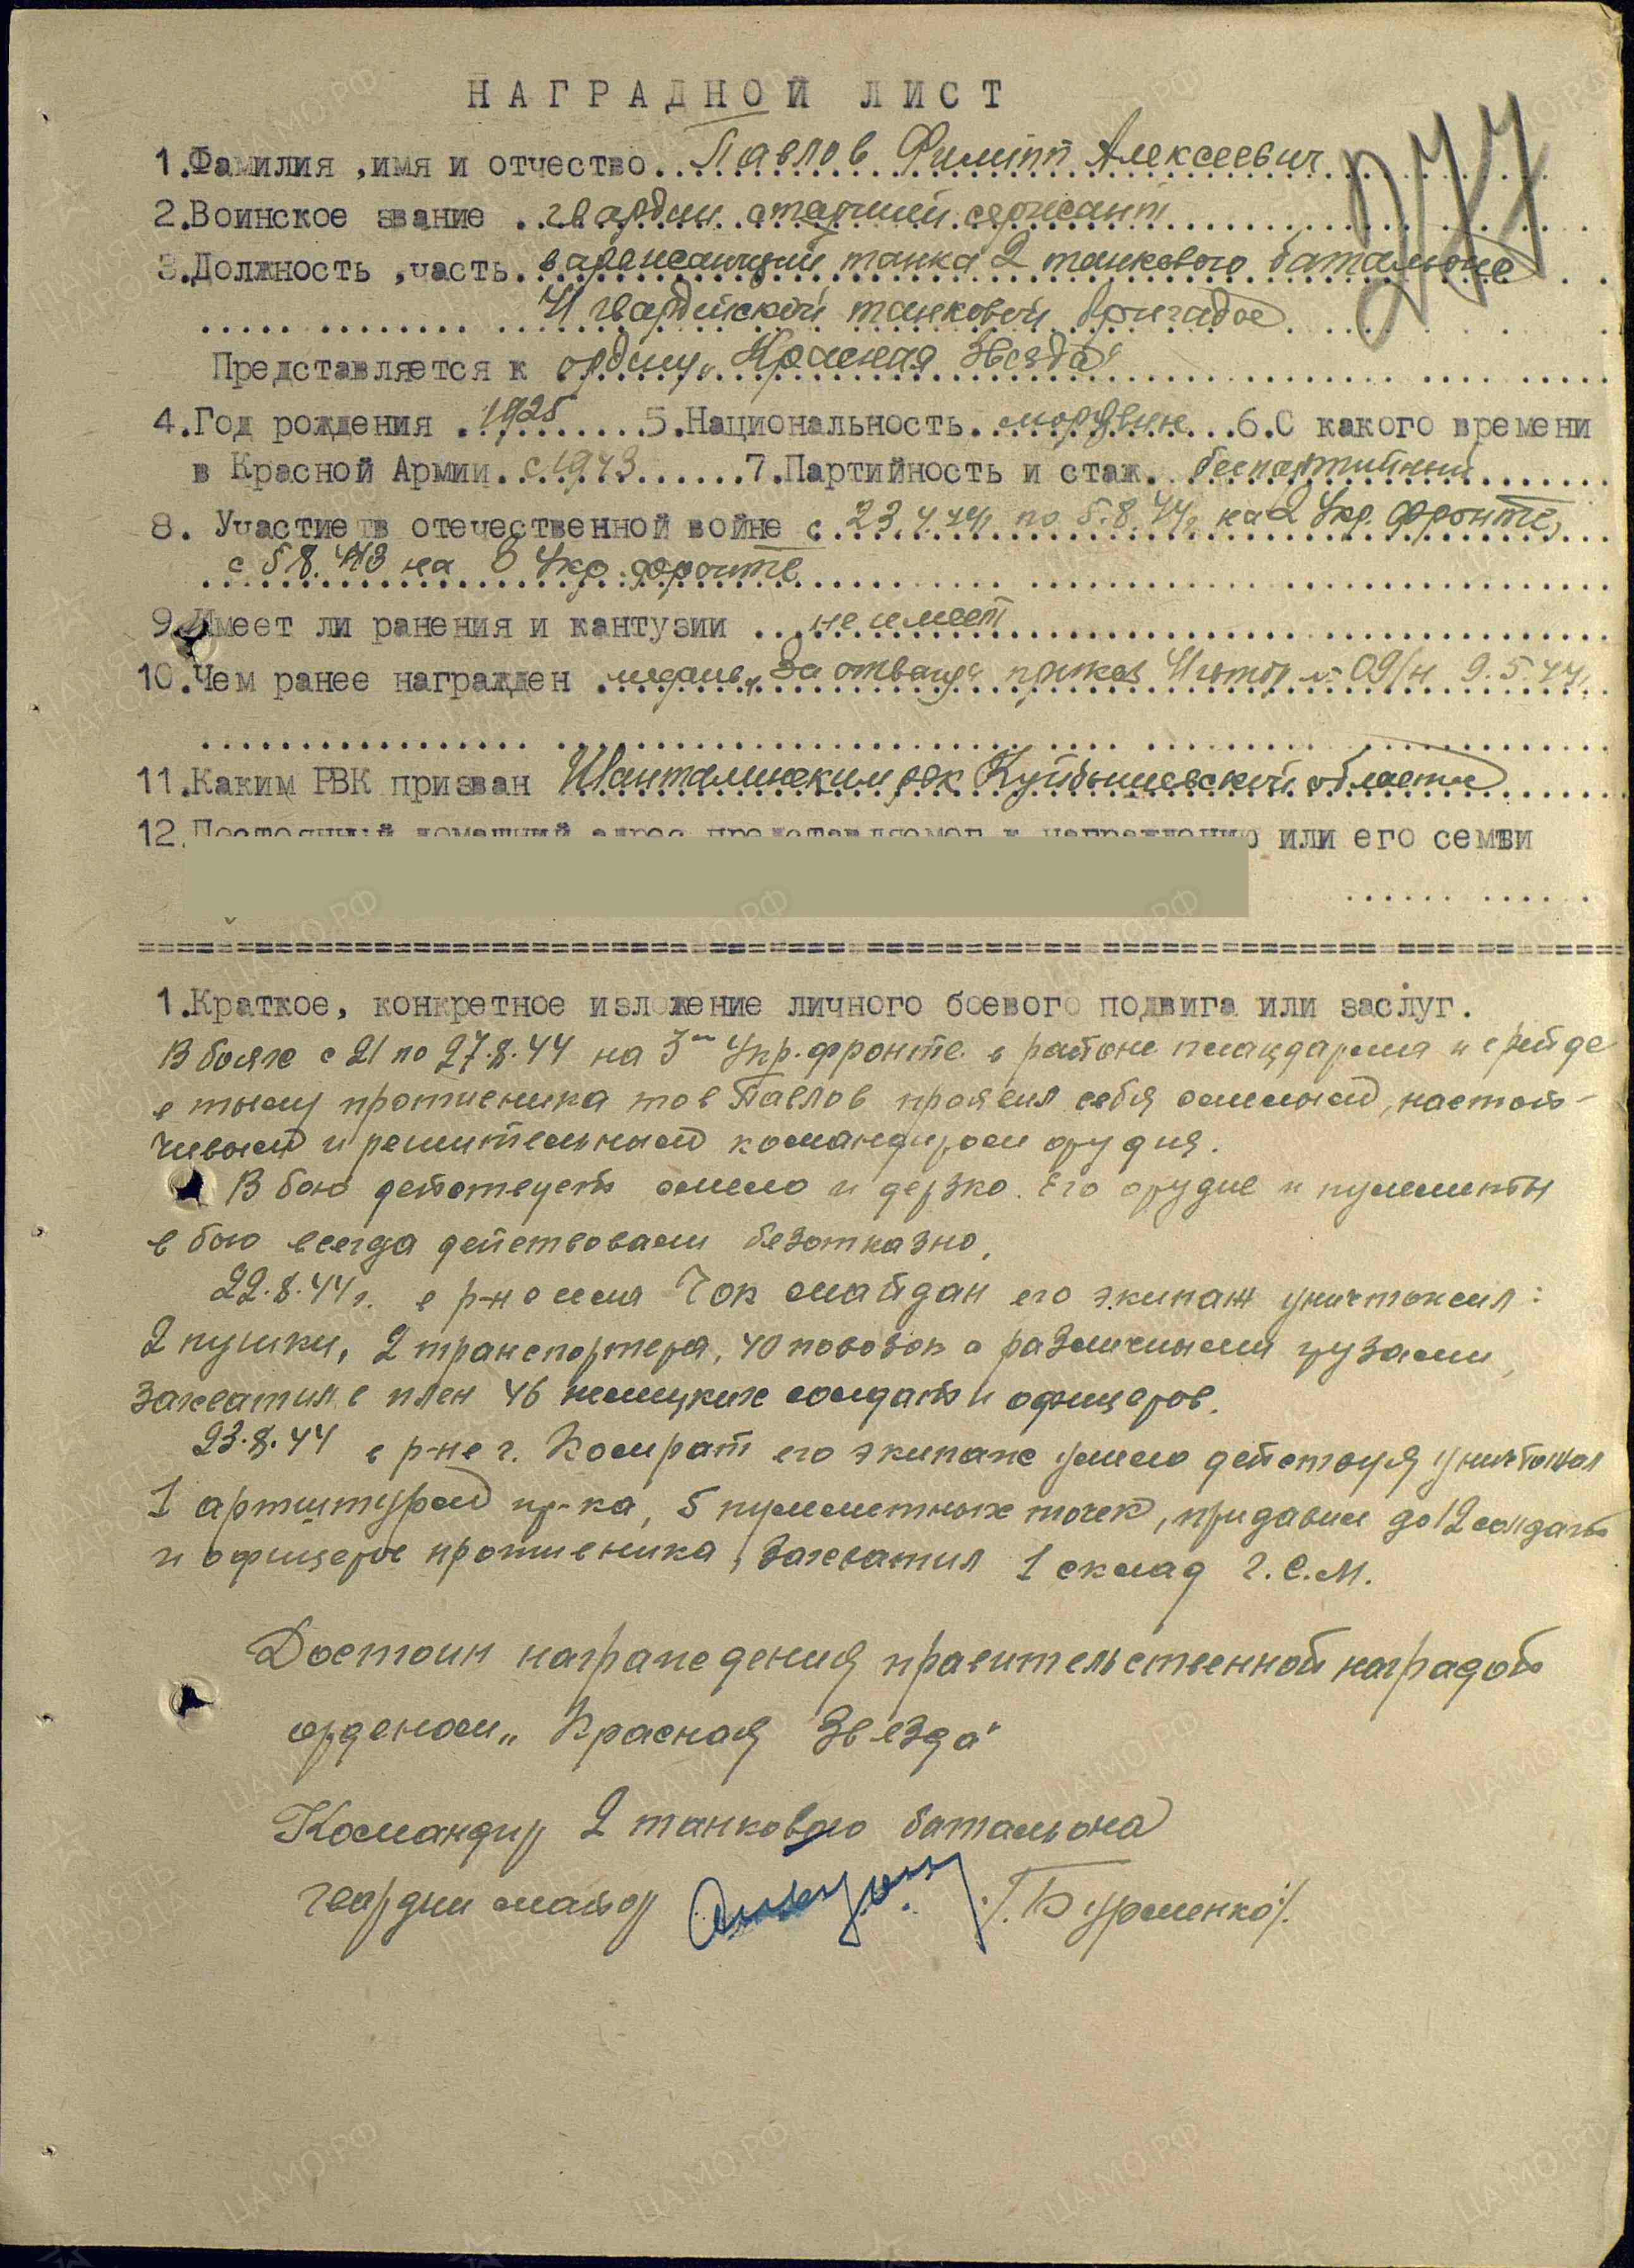 НАГРАДНОЙ ЛИСТ
1.Фамилия ,имя и отчество Павлов Филипп Алексеевич
2.Воинское звание гвардии старший сержант
3.Должность ,часть заряжающий танка 2 танкового батальона
41 гвардейской танковой бригады
Представляется к ордену „Красная Звезда“
4.Год рождения 1925 5.Национальность мордвин 6.С какого времени
в Красной Армии с 1943 7.Партийность и стаж беспартийный
8. Участие в отечественной войне с 23.4.44г по 5.8.44г на 2 Укр. фронте,
с 5.8. на 3 Укр. фронте
9.Имеет ли ранения и кантузии не имеет
10.Чем ранее награжден медаль „За отвагу“ приказ 41 гтбр № 09/н 9.5.44г.
11.Каким РВК призван Шанталинским рвк Куйбышевской области
12.Постоянный домашний адрес представляемог к награждению или его семьи
1.Краткое, конкретное изложение личного боевого подвига или заслуг.
В боях с 21 по 27.8.44 на 3м Укр. фронте в районе плацдарма и в рейде
в тылу противника тов Павлов проявил себя смелым, настой-
чивым и решительным командиром орудия.
В бою действует смело и дерзко. Его орудие и пулеметы
в бою всегда действовали безотказно.
22.8.44г. в р-не села Чок майдан его экипаж уничтожил:
2 пушки, 2 транспортера, 40 повозок с различными грузами,
захватил в плен 46 немецких солдат и офицеров.
23.8.44 в р-не г. Комрат его экипаж умело действуя уничтожил
1 арт пр-ка, 5 пулеметных точек, придавил до 12 солдат
и офицеров противника, захватил 1 склад Г.С.М.
Достоин награждения правительственной наградой
орденом „Красная Звезда“
Командир 2 танкового батальона
гвардии майор /Бурменко/.